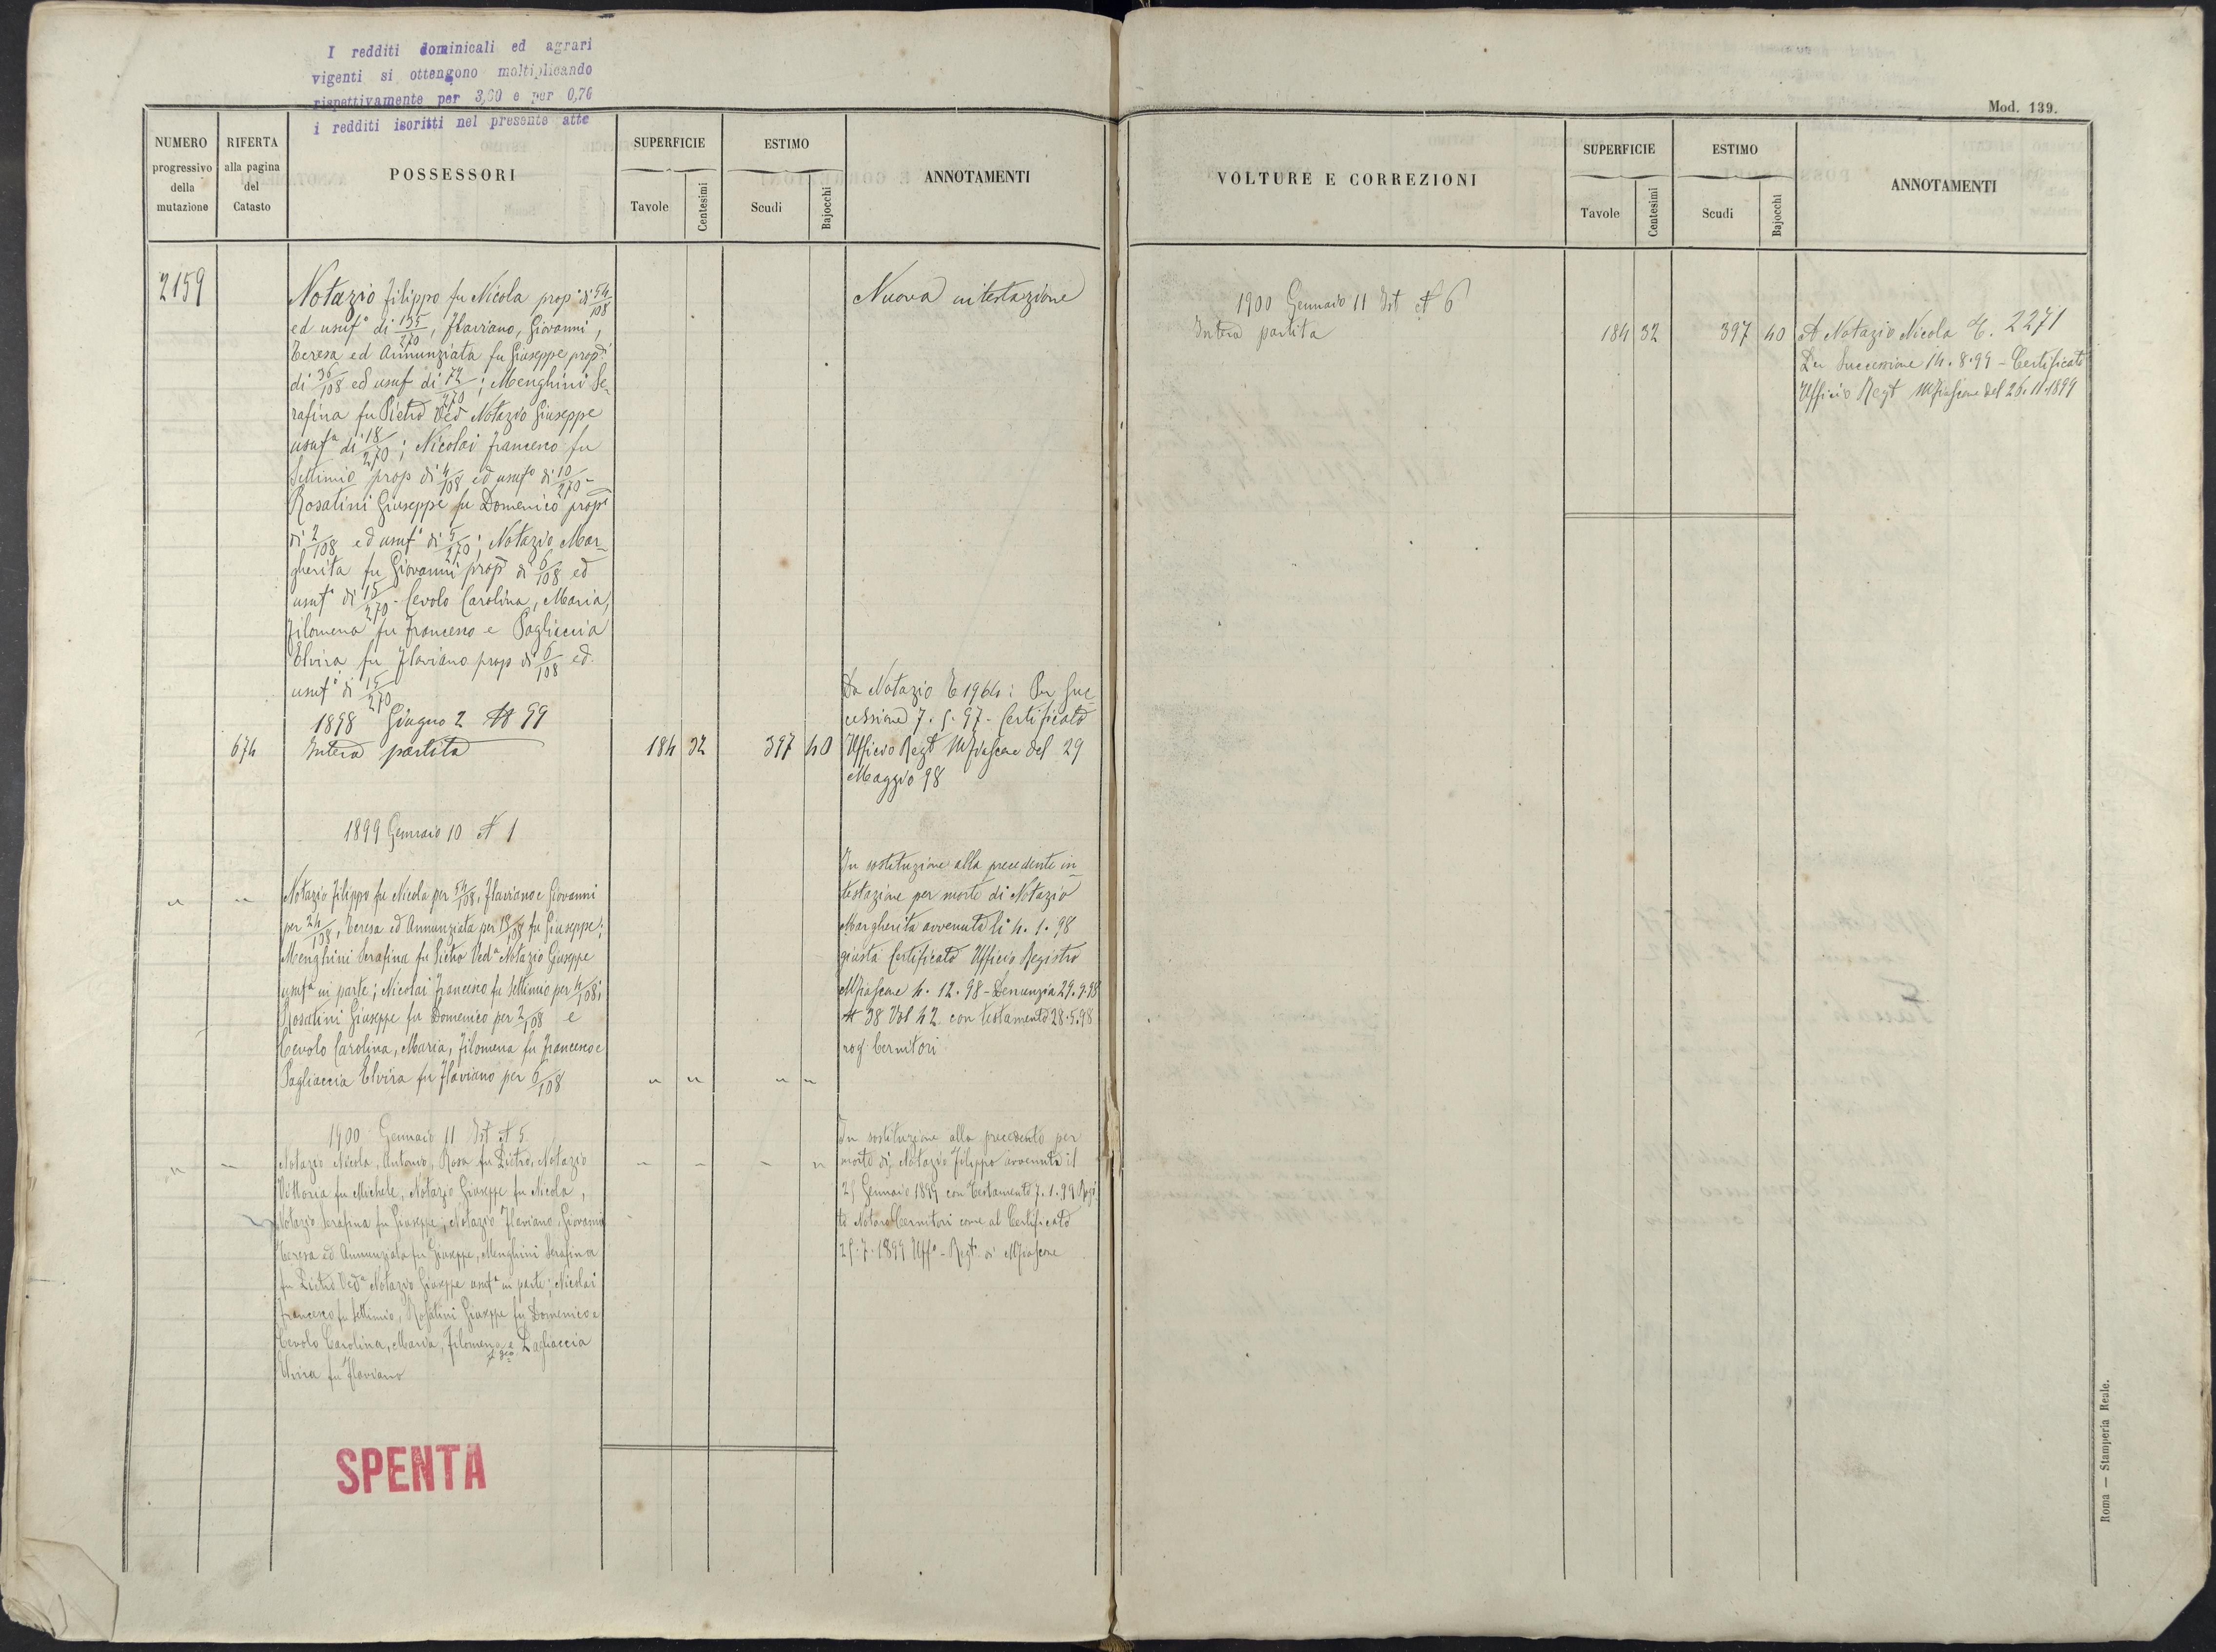 I redditi dominicali ed agrari
vigenti si ottengono moltiplicando
rispettivamente per 3,00 e per 0,76
i redditi iscritti nel presente atto
Mod. 139.
NUMERO
progressivo
della
mutazione
RIFERTA
alla pagina
del
Catasto
POSSESSORI
SUPERFICIE
Tavole
Centesimi
ESTIMO
Scudi
Bajocchi
ANNOTAMENTI
2159
Notazio Filippo fu Nicola prop° di 54/108
ed usuf° di 135/270, Flaviano, Giovanni,
Teresa ed Annunziata fu Giuseppe propri
di 36/108 ed usuf di 72/270; Menghini Se-
rafina fu Pietro Ved Notazio Giuseppe
usufa di 18/270; Nicolai Francesco fu
Settimio prop di 4/108 ed usuf° di 10/270 -
Rosatini Giuseppe fu Domenico prop°
di 2/108 ed usuf° di 5/270; Notazio Mar-
gherita fu Giovanni prop di 6/108 ed
usuf° di 15/270 - Cevolo Carolina, Maria,
Filomena fu Francesco e Pagliaccia
Elvira fu Flaviano prop di 6/108 ed
usuf° di 15/270
1898 Giugno 2 N 99
674 Intera partita 184 32 397 40
Nuova intestazione
Da Notazio C 1964: Per Suc-
cessione 7.5.97 - Certificato
Ufficio Regt Mfiascone del 29
Maggio 98
1899 Gennaio 10 N 1
" " Notazio Filippo fu Nicola per 54/108, Flaviano e Giovanni
per 24/108, Teresa ed Annunziata per 18/108 fu Giuseppe;
Menghini Serafina fu Pietro Veda Notazio Giuseppe
usufa in parte; Nicolai Francesco fu Settimio per 4/108;
Rosatini Giuseppe fu Domenico per 2/108 e
Cevolo Carolina, Maria, Filomena fu Francesco e
Pagliaccia Elvira fu Flaviano per 6/108 " " " "
In sostituzione alla precedente in-
testazione per morte di Notazio
Margherita avvenuta li 4.1.98
giusta Certificato Ufficio Registro
Mfiascone 4.12.98 - Denunzia 29.9.98
N 38 Vol 42 con testamento 28.5.98
rog Cernitori
1900 Gennaio 11 Ist N 5
" " Notazio Nicola, Antonio, Rosa fu Pietro, Notazio " " " "
Vittoria fu Michele, Notazio Giuseppe fu Nicola,
Notazio Serafina fu Giuseppe; Notazio Flaviano, Giovanni
Teresa ed Annunziata fu Giuseppe, Menghini Serafina
fu Pietro Veda Notazio Giuseppe usufa in parte; Nicolai
Francesco fu Settimio, Rosatini Giuseppe fu Domenico e
Cevolo Carolina, Maria, Filomena e Pagliaccia
Elvira fu Flaviano
In sostituzione alla precedente per
morte di Notazio Filippo avvenuta il
25 Gennaio 1899 con testamento 7.1.99 Rogi
to Notaro Cernitori come al Certificato
25.7.1899 Uff° - Regt° di Mfiascone
SPENTA
VOLTURE E CORREZIONI
SUPERFICIE
Tavole
Centesimi
ESTIMO
Scudi
Bajocchi
ANNOTAMENTI
1900 Gennaio 11 Ist N 6
Intera partita 184 32 397 40
A Notazio Nicola C. 2271
Per Successione 14.8.99 - Certificato
Ufficio Regt Mfiascone del 26.11.1899
Roma — Stamperia Reale.